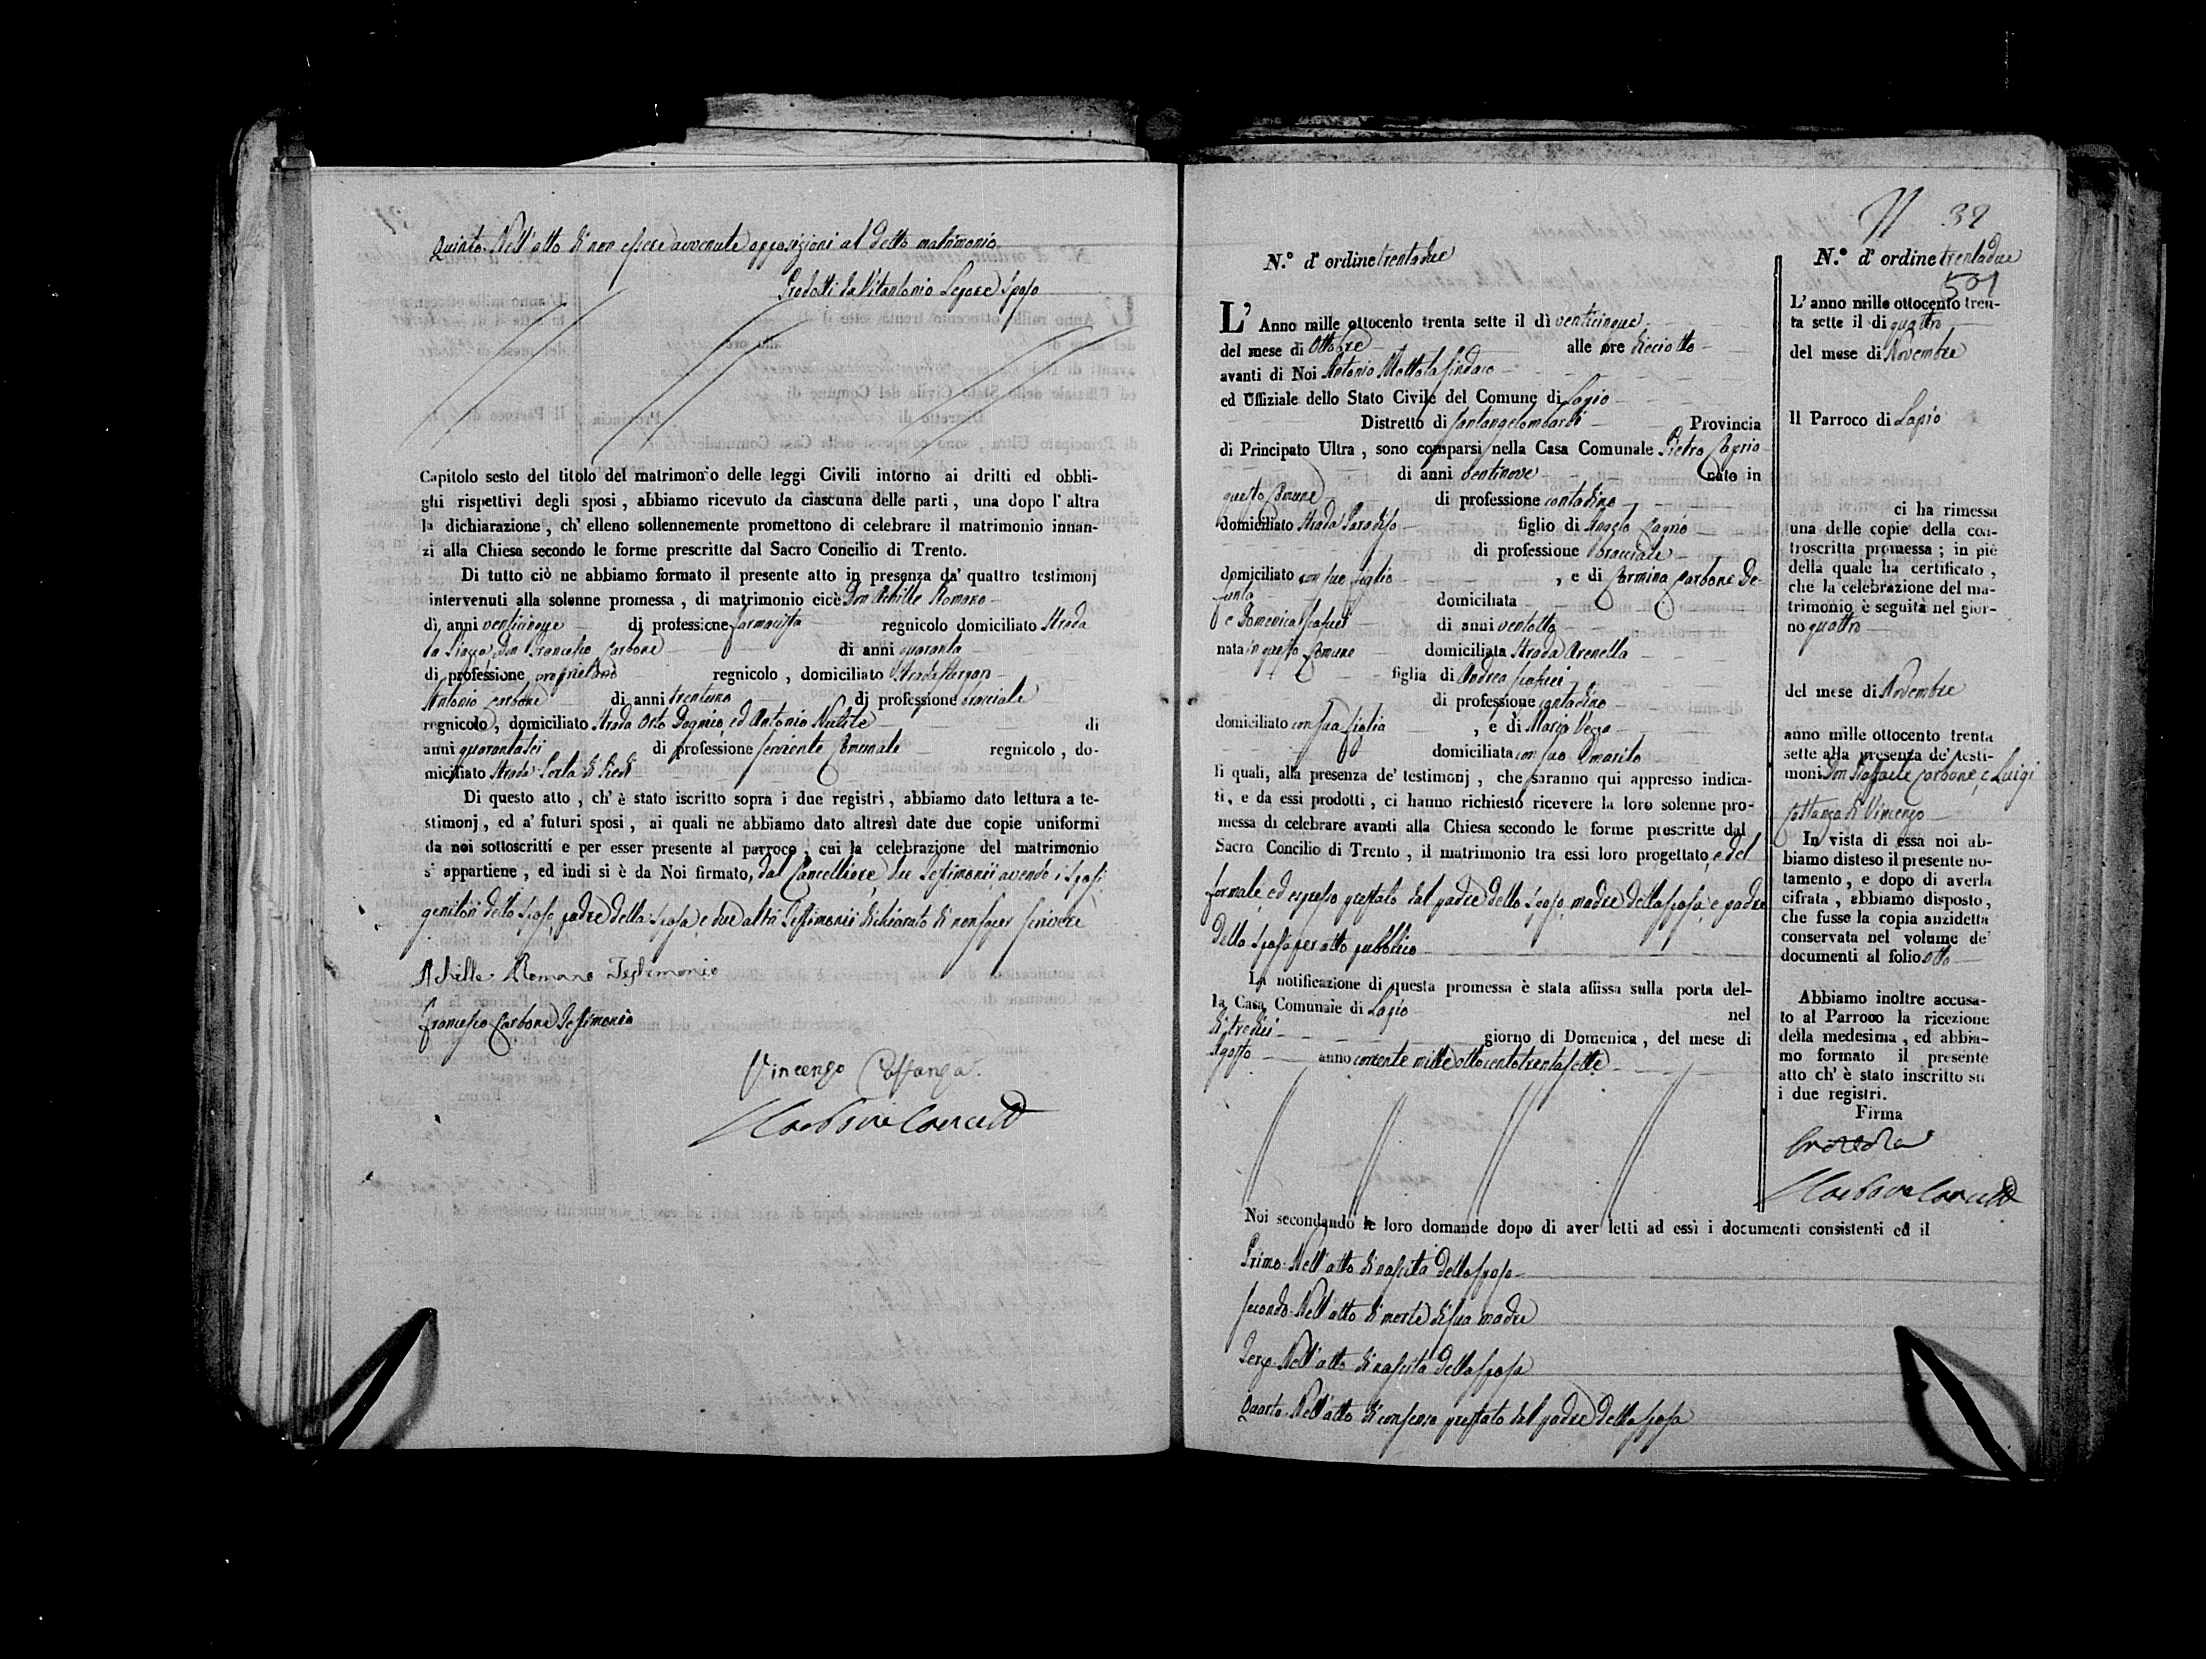 Quinto. Nell'atto di non essere avvenute opposizioni al detto matrimonio
Prodotti da Vitantonio Lepore sposo
Capitolo sesto del titolo del matrimonio delle leggi Civili intorno ai dritti ed obbli-
ghi rispettivi degli sposi, abbiamo ricevuto da ciascuna delle parti, una dopo l'altra
la dichiarazione, ch'elleno sollennemente promettono di celebrare il matrimonio innan-
zi alla Chiesa secondo le forme prescritte dal Sacro Concilio di Trento.
Di tutto ciò ne abbiamo formato il presente atto in presenza da' quattro testimonj
intervenuti alla solenne promessa, di matrimonio cicè Don Achille Romano
di, anni venticinque di professione farmacista regnicolo domiciliato Strada
la Piazza, Don Francesco Carbone di anni quaranta
di professione proprietario regnicolo, domiciliato Strada
Antonio Carbone di anni trentuno di professione bracciale
regnicolo, domiciliato Strada Orto ed Antonio di
anni quarantasei di professione serviente Comunale regnicolo, do-
miciliato Strada Porta di Piedi
Di questo atto, ch'è stato iscritto sopra i due registri, abbiamo dato lettura a te-
stimonj, ed a' futuri sposi, ai quali ne abbiamo dato altresì date due copie uniformi
da noi sottoscritti e per esser presente al parroco, cui la celebrazione del matrimonio
s' appartiene, ed indi si è da Noi firmato, dal Cancelliere, due Testimonii, avendo i sposi
genitori dello sposo, padre della sposa, e due altri Testimonii dichiarato di non saper scrivere
Achille Romano Testimonio
Francesco Carbone Testimonio
Vincenzo Costanza
39
N.° d' ordine trentadue
L' Anno mille ottocento trenta sette il dì venticinque
del mese di Ottobre alle ore dieciotto
avanti di Noi Antonio Mottola Sindaco
ed Uffiziale dello Stato Civile del Comune di Lapio
Distretto di Santangelombardi Provincia
di Principato Ultra, sono comparsi nella Casa Comunale Pietro Caprio
di anni ventinove nato in
questo Comune di professione contadino
domiciliato Strada Paradiso figlio di Angelo Caprio
di professione bracciale
domiciliato con suo figlio, e di Carmina Carbone De-
funta domiciliata
e Domenica di anni ventotto
nata in questo Comune domiciliata Strada Arenella
figlia di Andrea
di professione contadino
domiciliato con sua figlia, e di
domiciliata con suo marito
li quali, alla presenza de' testimonj, che saranno qui appresso indica-
ti, e da essi prodotti, ci hanno richiesto ricevere la loro solenne pro-
messa di celebrare avanti alla Chiesa secondo le forme prescritte dal
Sacro Concilio di Trento, il matrimonio tra essi loro progettato, e del
formale, ed espresso prestato dal padre dello Sposo, madre della sposa, e padre
della sposa per atto pubblico
La notificazione di questa promessa è stata affissa sulla porta del-
la Casa Comunale di Lapio nel
di tredici giorno di Domenica, del mese di
Agosto anno corrente mille ottocentotrentasette
Noi secondando le loro domande dopo di aver letti ad essi i documenti consistenti ed il
Primo. Nell'atto di nascita dello sposo
Secondo. Nell'atto di morte di sua madre
Terzo. Nell'atto di nascita della sposa
Quarto. Nell'atto di consenso prestato dal padre della sposa
N.° d' ordine trentadue
501
L' anno mille ottocento tren-
ta sette il dì quattro
del mese di Novembre
Il Parroco di Lapio
ci ha rimessa
una delle copie della con-
troscritta promessa; in piè
della quale ha certificato,
che la celebrazione del ma-
trimonio è seguita nel gior-
no quattro
del mese di Novembre
anno mille ottocento trenta
sette alla presenza de' testi-
moni Don Raffaele Carbone, e Luigi
Costanza di Vincenzo
In vista di essa noi ab-
biamo disteso il presente no-
tamento, e dopo di averla
cifrata, abbiamo disposto,
che fusse la copia anzidetta
conservata nel volume de'
documenti al folio otto
Abbiamo inoltre accusa-
to al Parroco la ricezione
della medesima, ed abbia-
mo formato il presente
atto ch'è stato inscritto su
i due registri.
Firma